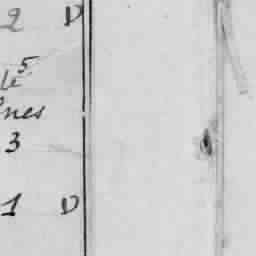 2 D
5
le
nes
3
1 D